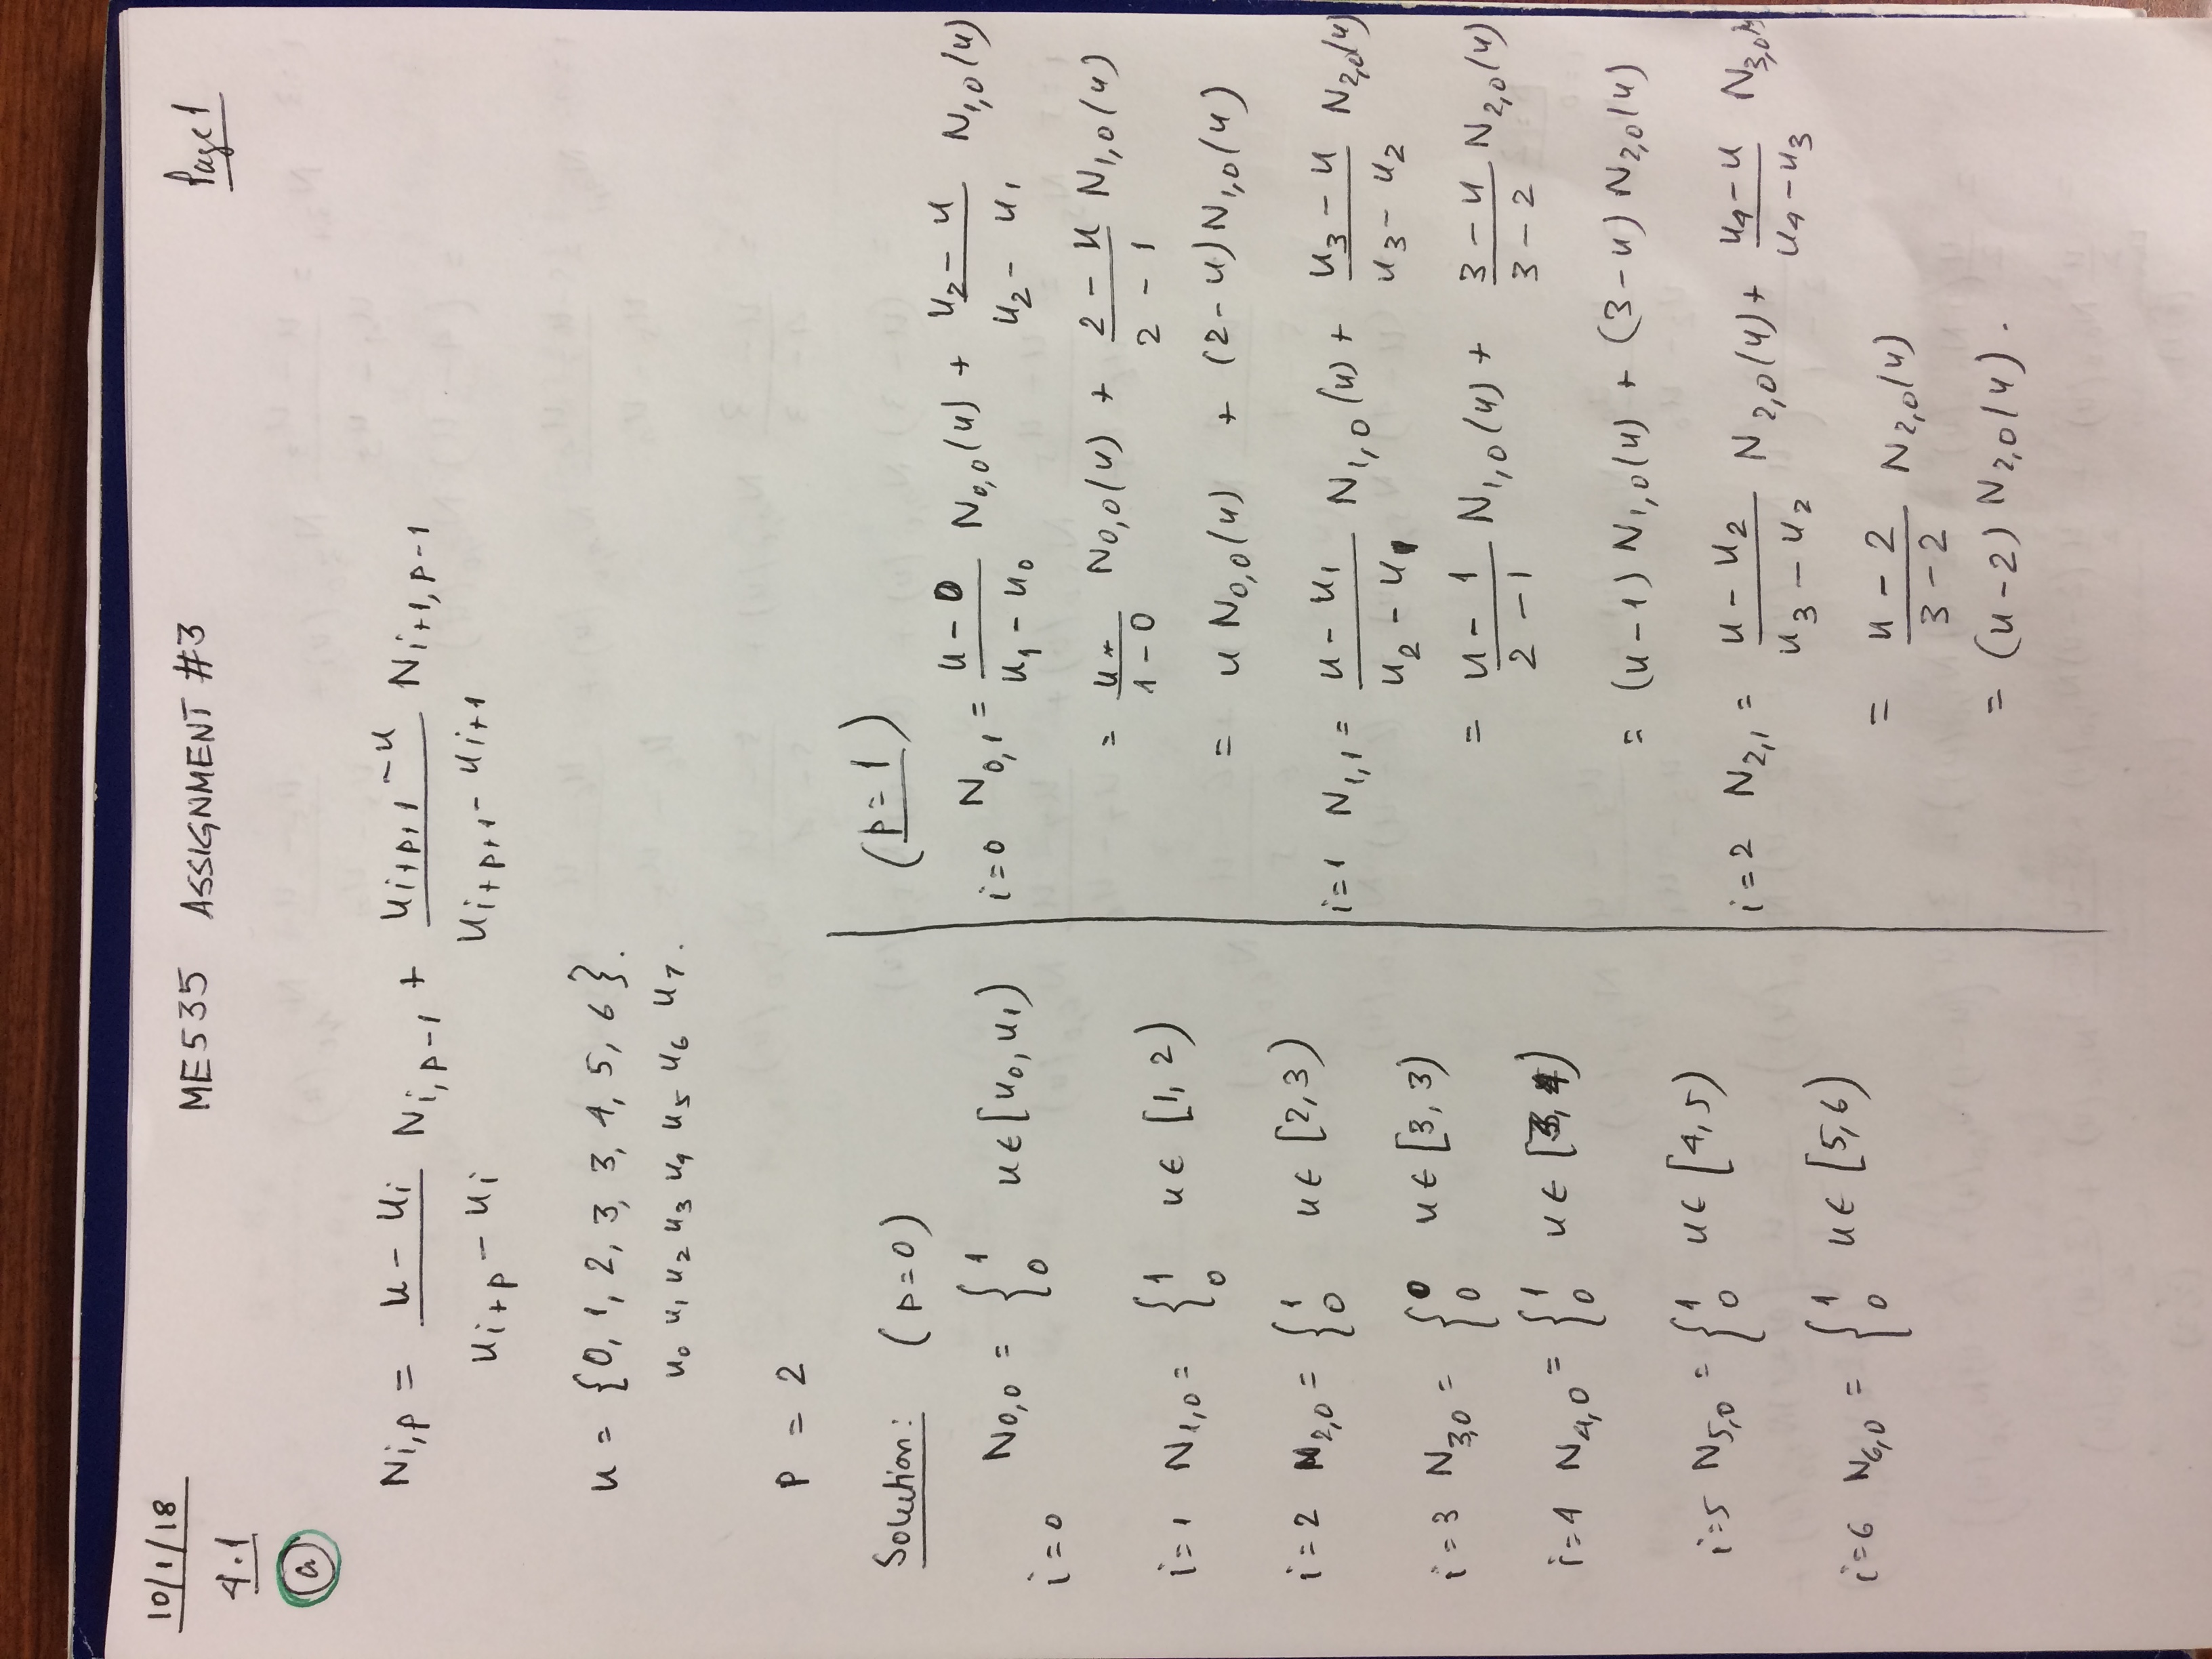 10/1/18
ME535 ASSIGNMENT #3
Page 1
4.1
(a)
Ni,p = (u - ui)/(ui+p - ui) Ni,p-1 + (ui+p+1 - u)/(ui+p+1 - ui+1) Ni+1,p-1
u = {0, 1, 2, 3, 3, 4, 5, 6}.
u0 u1 u2 u3 u4 u5 u6 u7.
P = 2
Solution: (p=0)
i=0 N0,0 = { 1 0 u ∈ [u0, u1)
i=1 N1,0 = { 1 0 u ∈ [1, 2)
i=2 N2,0 = { 1 0 u ∈ [2,3)
i=3 N3,0 = { 0 0 u ∈ [3, 3)
i=4 N4,0 = { 1 0 u ∈ [3, 4)
i=5 N5,0 = { 1 0 u ∈ [4,5)
i=6 N6,0 = { 1 0 u ∈ [5,6)
(p=1)
i=0 N0,1 = (u - 0)/(u1 - u0) N0,0(u) + (u2 - u)/(u2 - u1) N1,0(u)
= u/(1-0) N0,0(u) + (2 - u)/(2 - 1) N1,0(u)
= u N0,0(u) + (2-u)N1,0(u)
i=1 N1,1 = (u - u1)/(u2 - u1) N1,0(u) + (u3 - u)/(u3 - u2) N2,0(u)
= (u - 1)/(2 - 1) N1,0(u) + (3 - u)/(3 - 2) N2,0(u)
= (u-1) N1,0(u) + (3-u) N2,0(u)
i=2 N2,1 = (u - u2)/(u3 - u2) N2,0(u) + (u4 - u)/(u4 - u3) N3,0
= (u - 2)/(3 - 2) N2,0(u)
= (u-2) N2,0(u).